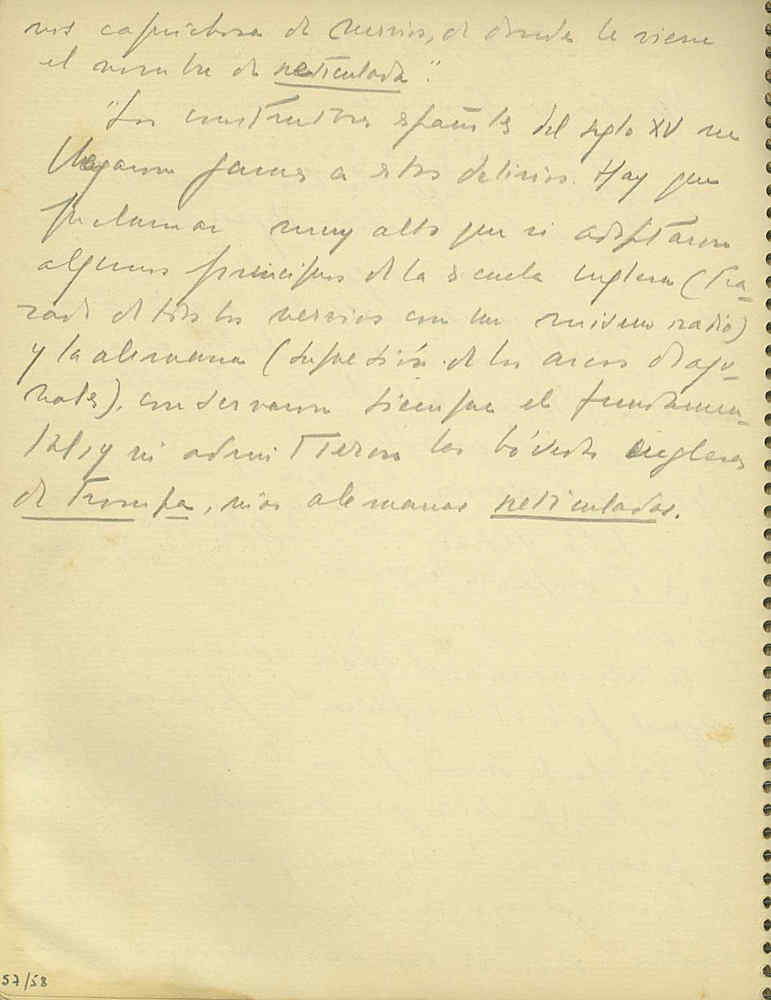 nos caprichosa de nervios, de donde le viene
el nombre de reticulada".
"Los constructores españoles del siglo XV no
llegaron jamás a estos delirios. Hay que
proclamar muy alto que si adoptaron
algunos principios de la escuela inglesa (tra-
zado de todos los nervios con un mismo radio)
y la alemana (supresión de los arcos diago-
nales), conservaron siempre el fundamen-
tal, y ni admitieron las bóvedas inglesas
de trompa, ni las alemanas reticuladas.
57/58